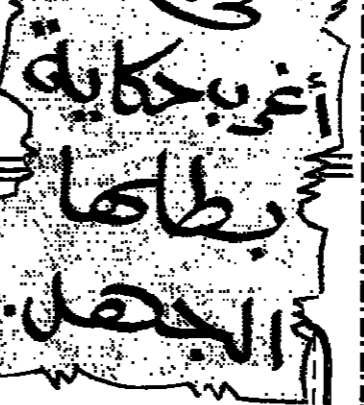 أغرب حكاية
بطلها
الجهل